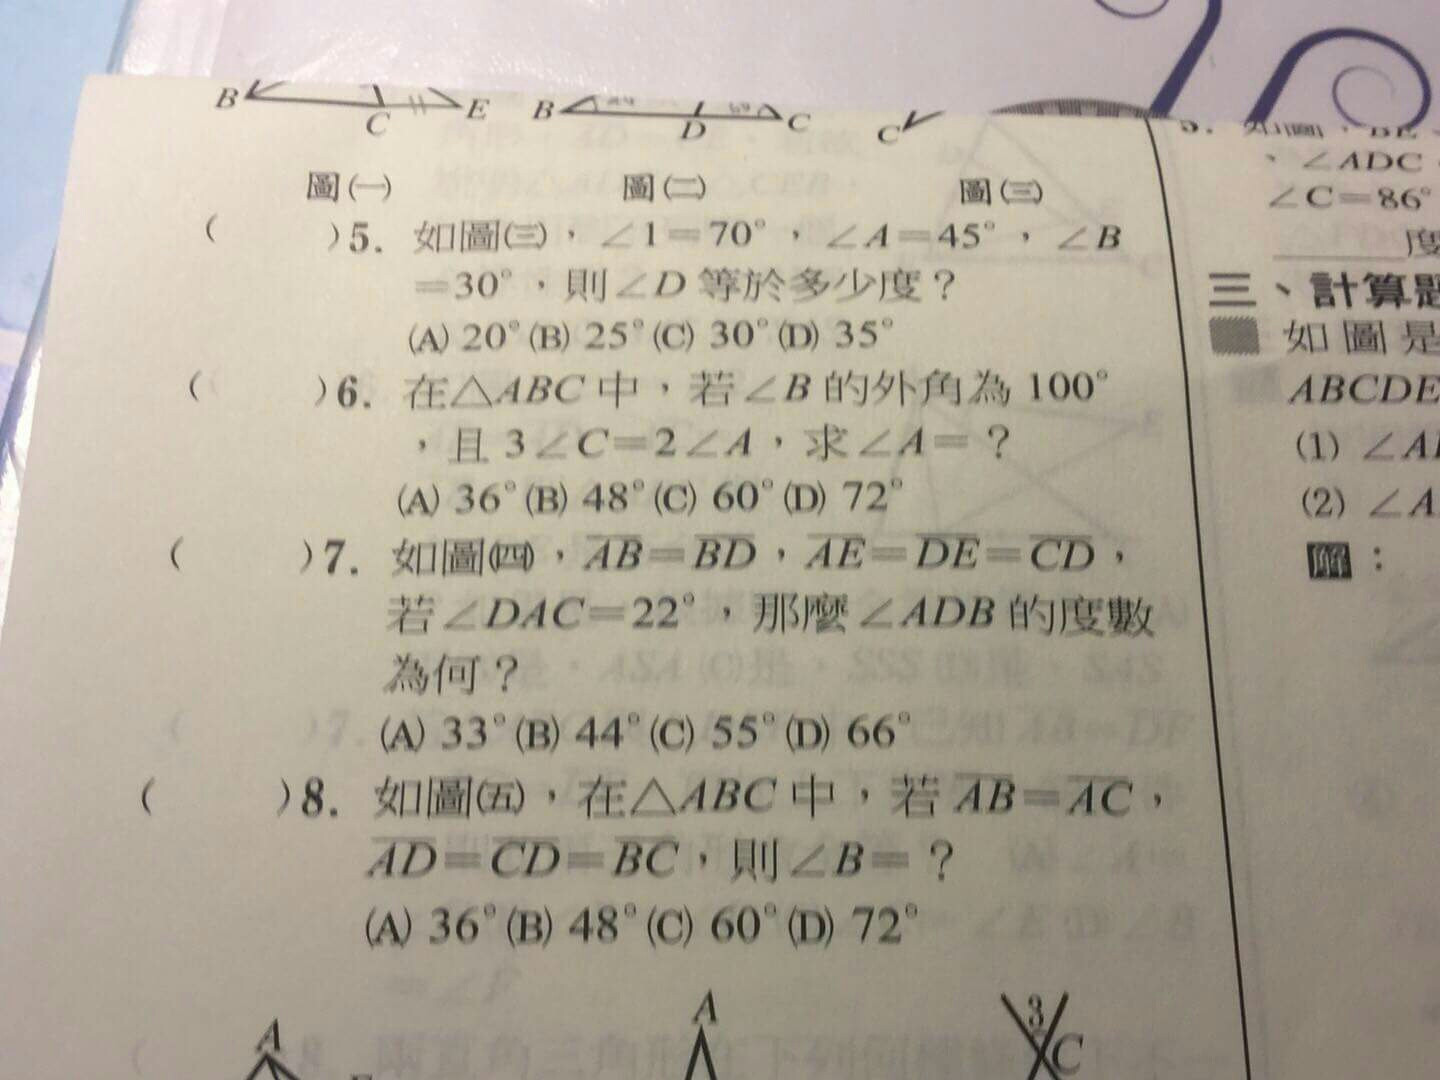 B
C
E
B
D
C
C
圖(一)
圖(二)
圖(三)
( )5. 如圖(三)，∠1=70°，∠A=45°，∠B
=30°，則∠D 等於多少度？
(A) 20° (B) 25° (C) 30° (D) 35°
( )6. 在△ABC 中，若∠B 的外角為 100°
，且 3∠C=2∠A，求∠A=？
(A) 36° (B) 48° (C) 60° (D) 72°
( )7. 如圖(四)，AB=BD，AE=DE=CD，
若∠DAC=22°，那麼∠ADB 的度數
為何？
(A) 33° (B) 44° (C) 55° (D) 66°
( )8. 如圖(五)，在△ABC 中，若 AB=AC，
AD=CD=BC，則∠B=？
(A) 36° (B) 48° (C) 60° (D) 72°
A
A
3
C
、∠ADC
∠C=86°
度
三、計算題
如圖是
ABCDE
(1) ∠A
(2) ∠A
解：